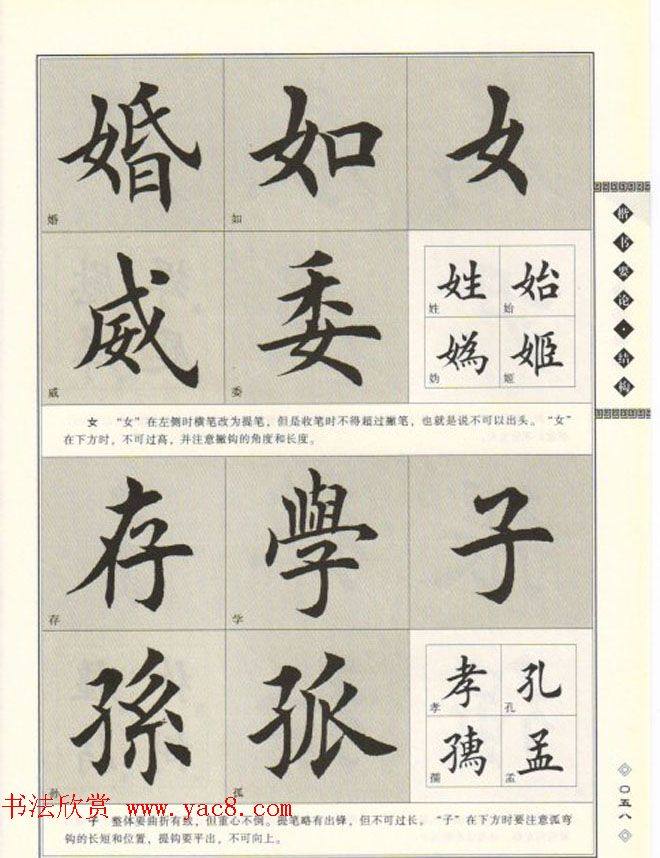 婚 如 女
婚 如
威 委 姓 始
姓 始
媯 姬
威 委 妫 姬
女 “女”在左侧时横笔改为提笔，但是收笔时不得超过撇笔，也就是说不可以出头。“女”
在下方时，不可过高，并注意撇钩的角度和长度。
存 學 子
存 学
孫 孤 孝 孔
孝 孔
孺 孟
孤 孺 孟
子 整体要曲折有致，但重心不倒。提笔略有出锋，但不可过长。“子”在下方时要注意弧弯
钩的长短和位置，提钩要平出，不可向上。
楷书要论·结构
〇五八
书法欣赏 www.yac8.com